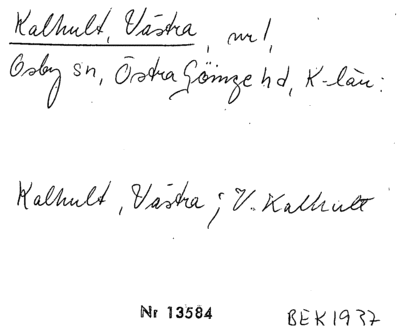 Kalhult, Västra, nr 1,
Osby sn, Östra Göinge hd, K-län:
Kalhult, Västra; V. Kalhult
Nr 13584 BEK 1937